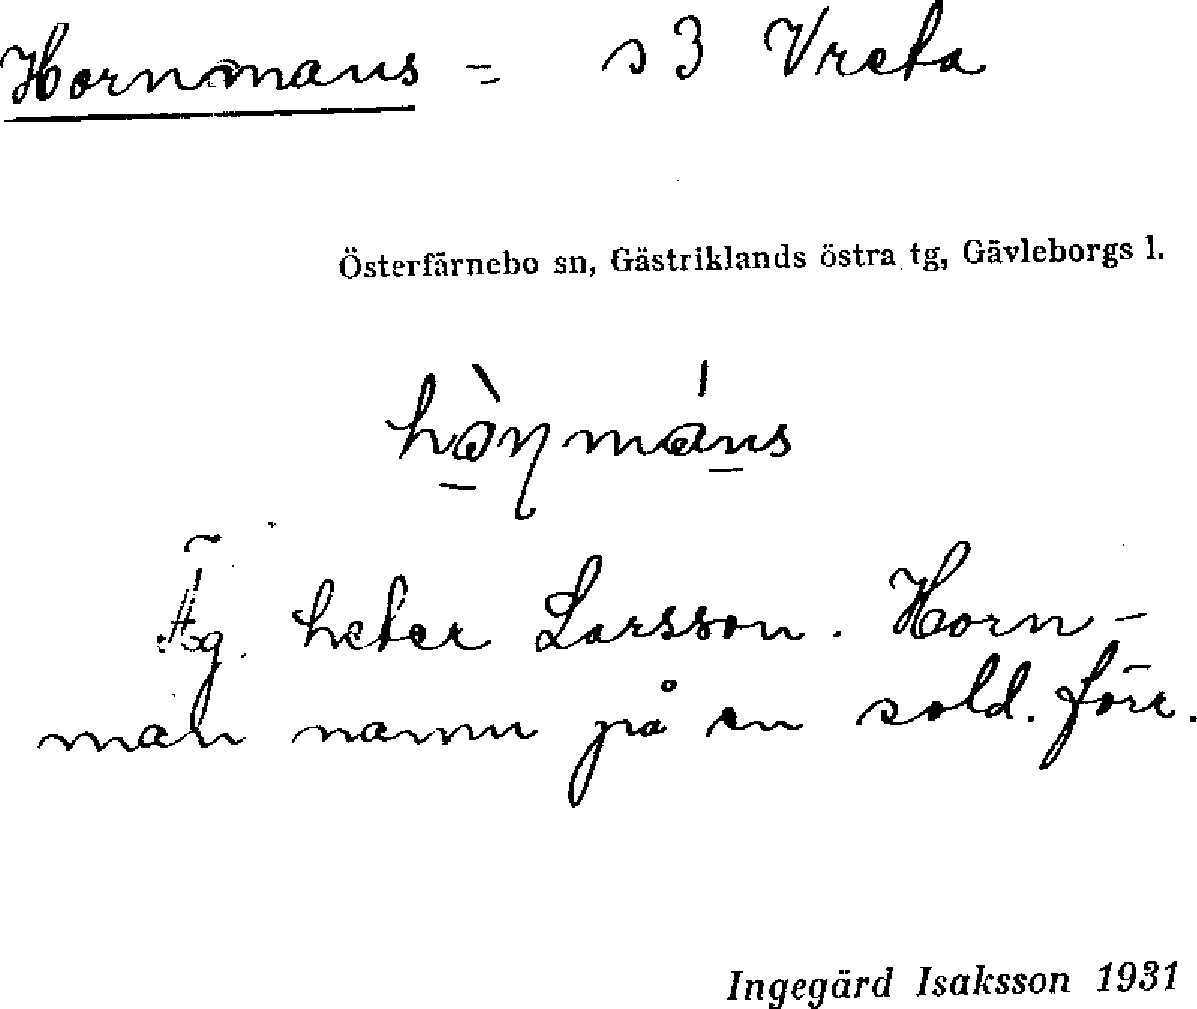 Hornmans = s 3 Vreta
Österfärnebo sn, Gästriklands östra tg, Gävleborgs l.
Äg. heter Larsson. Horn-
man namn på en sold. förr.
Ingegärd Isaksson 1931